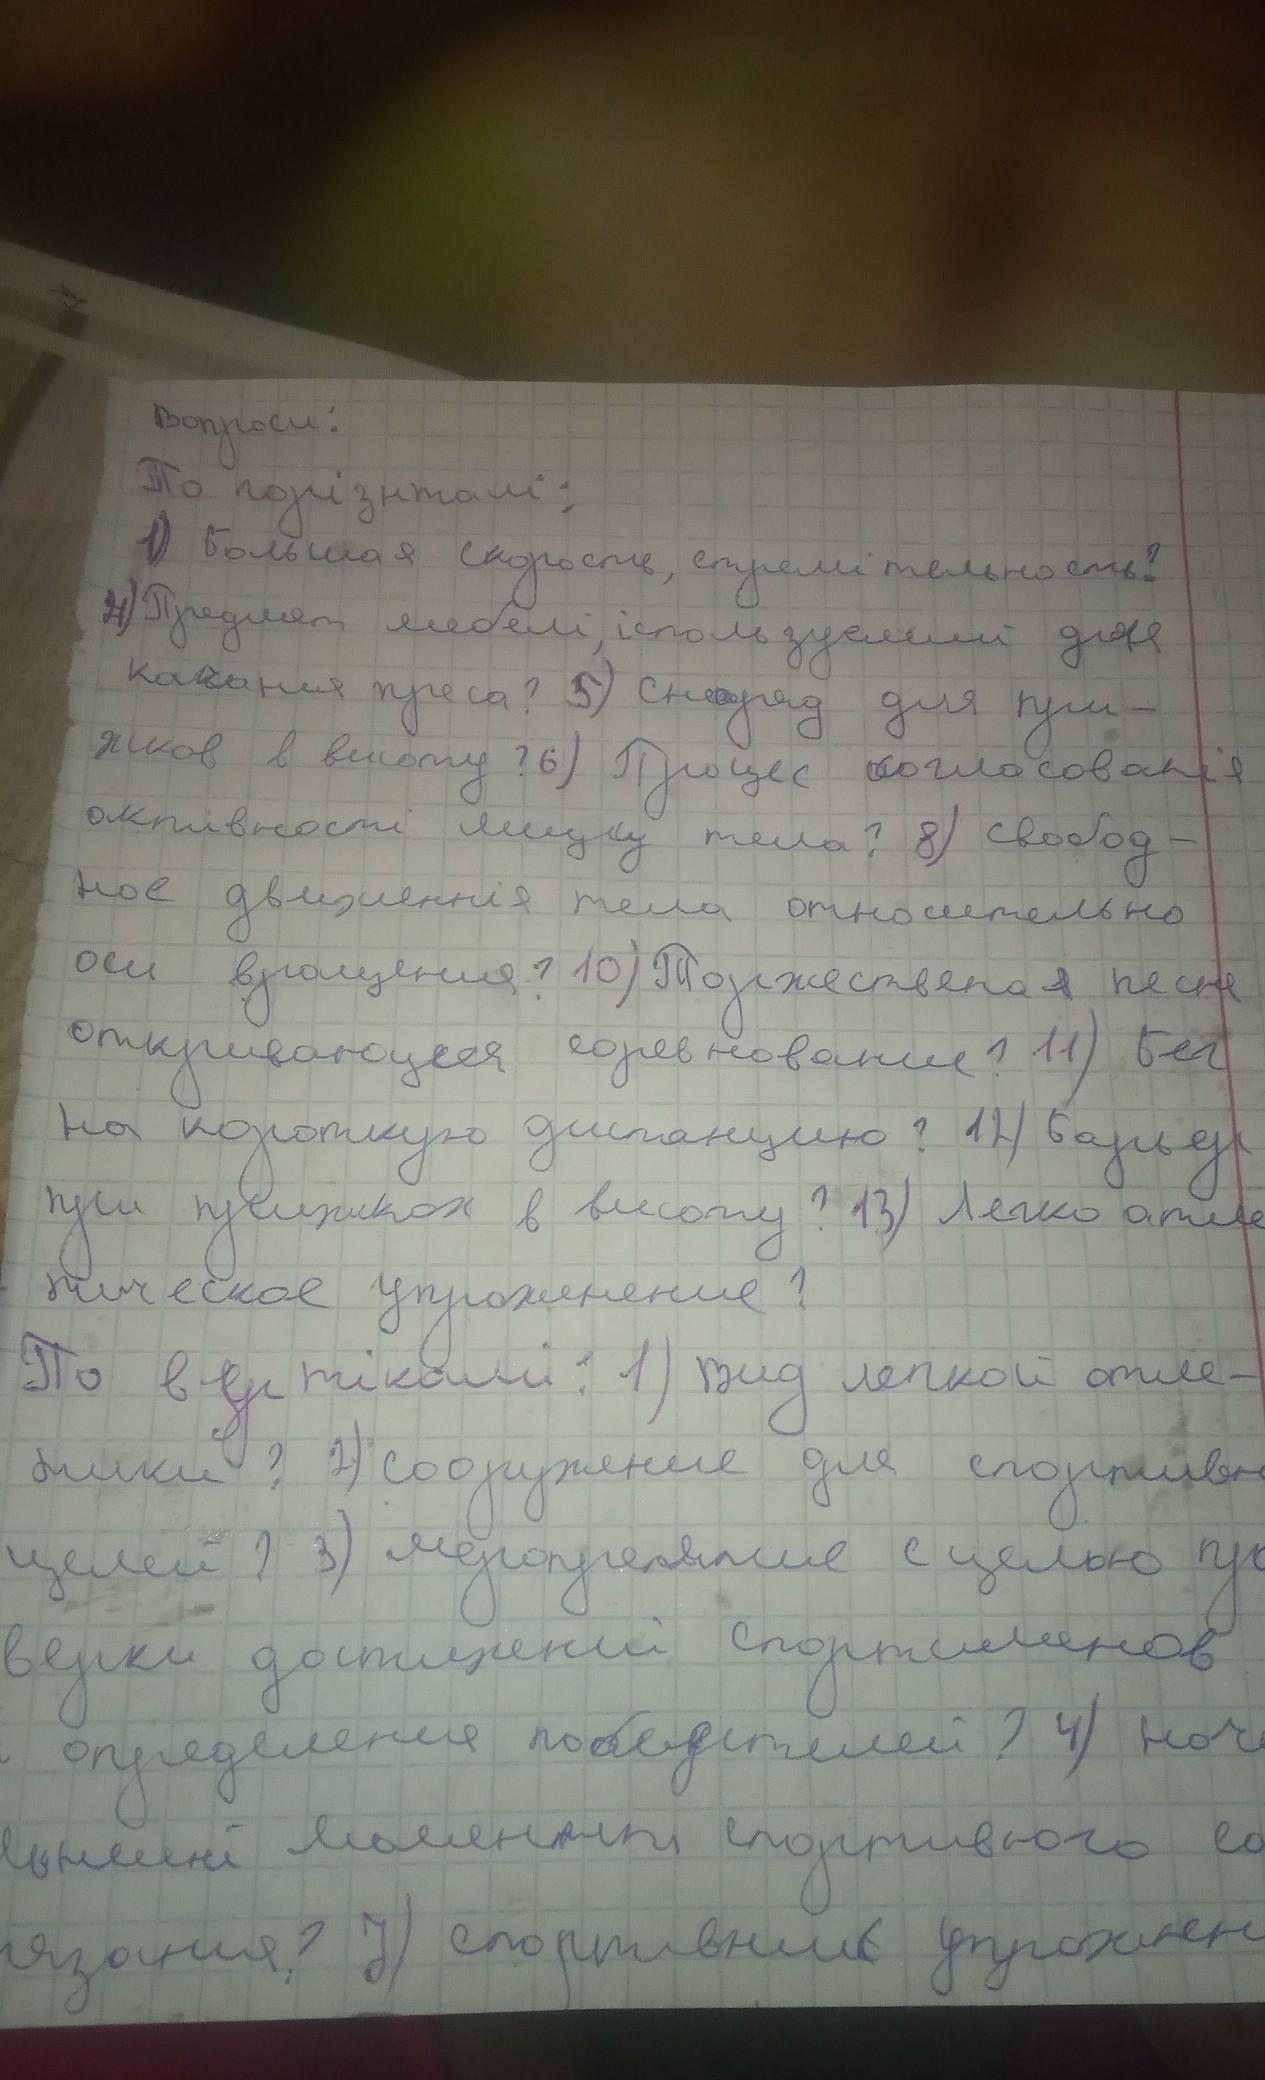 Вопроси:
По горізнталі:
1) Большая скорость, стремітельность?
4) Предмет мебелі, іспользуемий для
качания преса? 5) Снаряд для при-
жков в висоту? 6) Процес согласованія
активності мишц тела? 8) Свобод-
ное движеннія тела относительно
оси вращения? 10) Торжественая песня
откривающаяся соревнование? 11) Бег
на короткую дистанцию? 12) Барьер
при прижках в висоту? 13) Легко атле
тическое упражнение?
По вертікалі: 1) Вид легкой атле-
тики? 2) Сооружение для спортивн
целей? 3) Мероприятие с целью про
верки достижений спортсменов
определения победителей? 4) Нача
льниі момент спортивного со
язания? 7) Спортивние упражнен